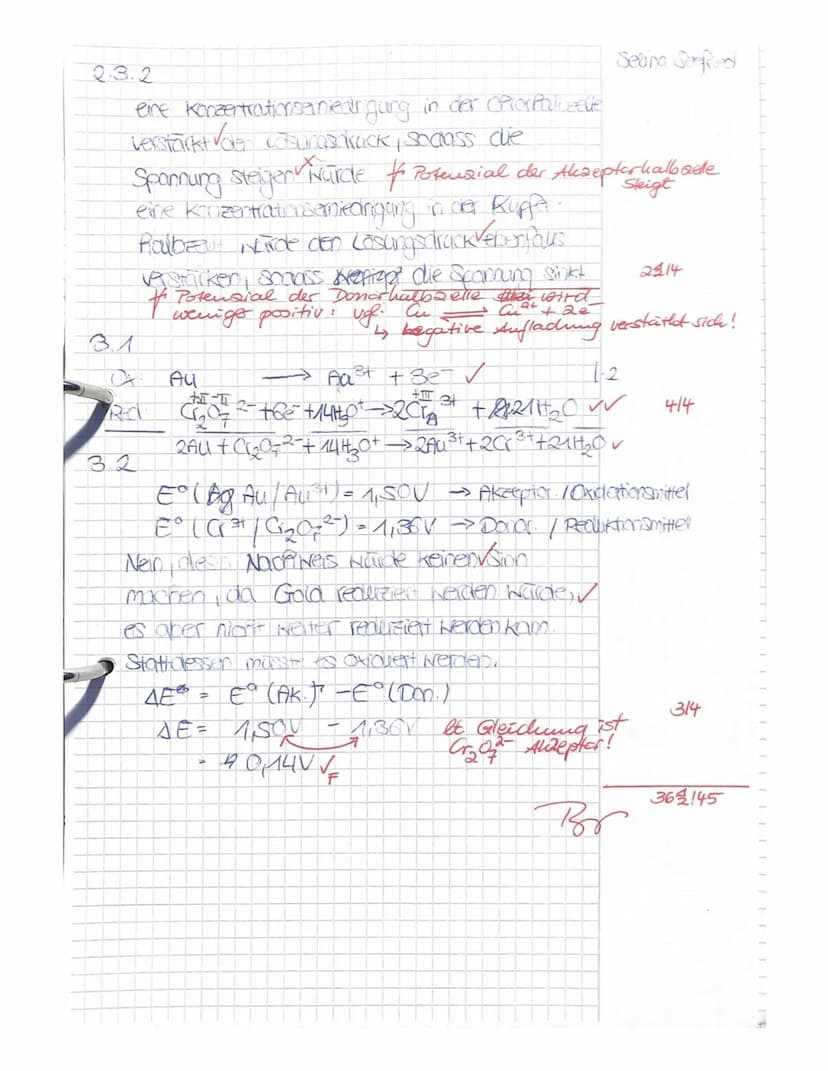 Selina
2.3.2
eine Konzentrationserniedrigung in der Chlorhalbzelle
verstärkt √ den Lösungsdruck, sodass die
Spannung steigen √x würde
↯ Potenzial der Akzeptorhalbzelle
steigt
eine Konzentrationserniedrigung in der Kupfer-
halbzelle würde den Lösungsdruck √ ebenfalls
verstärken, sodass die Spannung sinkt
2½/4
↯ Potenzial der Donorhalbzelle wird
weniger positiv: vgl. Cu ⇌ Cu²⁺ + 2e⁻
↳ negative Aufladung verstärkt sich!
3.1
Ox: Au → Au³⁺ + 3e⁻ √ |·2
+VI -II +III
Red: Cr₂O₇²⁻ + 6e⁻ + 14H₃O⁺ → 2Cr³⁺ + 21H₂O √√
4/4
2Au + Cr₂O₇²⁻ + 14H₃O⁺ → 2Au³⁺ + 2Cr³⁺ + 21H₂O √
3.2
E°(Au/Au³⁺) = 1,50V → Akzeptor / Oxidationsmittel
E°(Cr³⁺/Cr₂O₇²⁻) = 1,36V → Donor / Reduktionsmittel
Nein, dieser Nachweis würde keinen √ Sinn
machen, da Gold reduziert werden würde, √
es aber nicht weiter reduziert werden kann.
Stattdessen müsste es oxidiert werden.
ΔE° = E°(Ak.) - E°(Don.)
3/4
ΔE = 1,50V - 1,36V
lt. Gleichung ist
Cr₂O₇²⁻ Akzeptor!
= 0,14V √F
36½/45